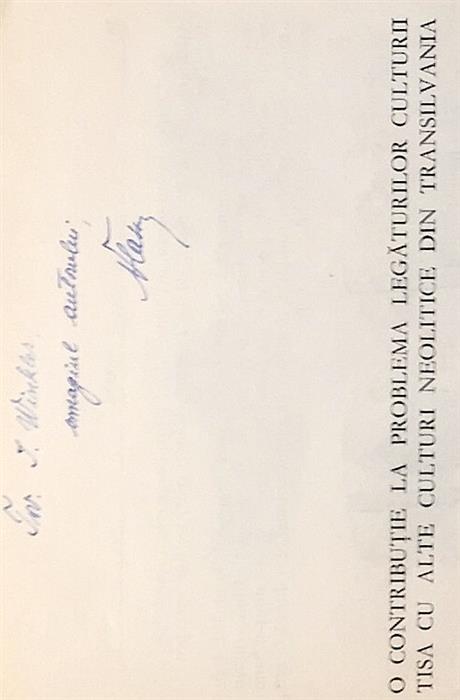 Tov. I. Winkler,
omagiul autorului,
Vlassa
O CONTRIBUȚIE LA PROBLEMA LEGĂTURILOR CULTURII
TISA CU ALTE CULTURI NEOLITICE DIN TRANSILVANIA